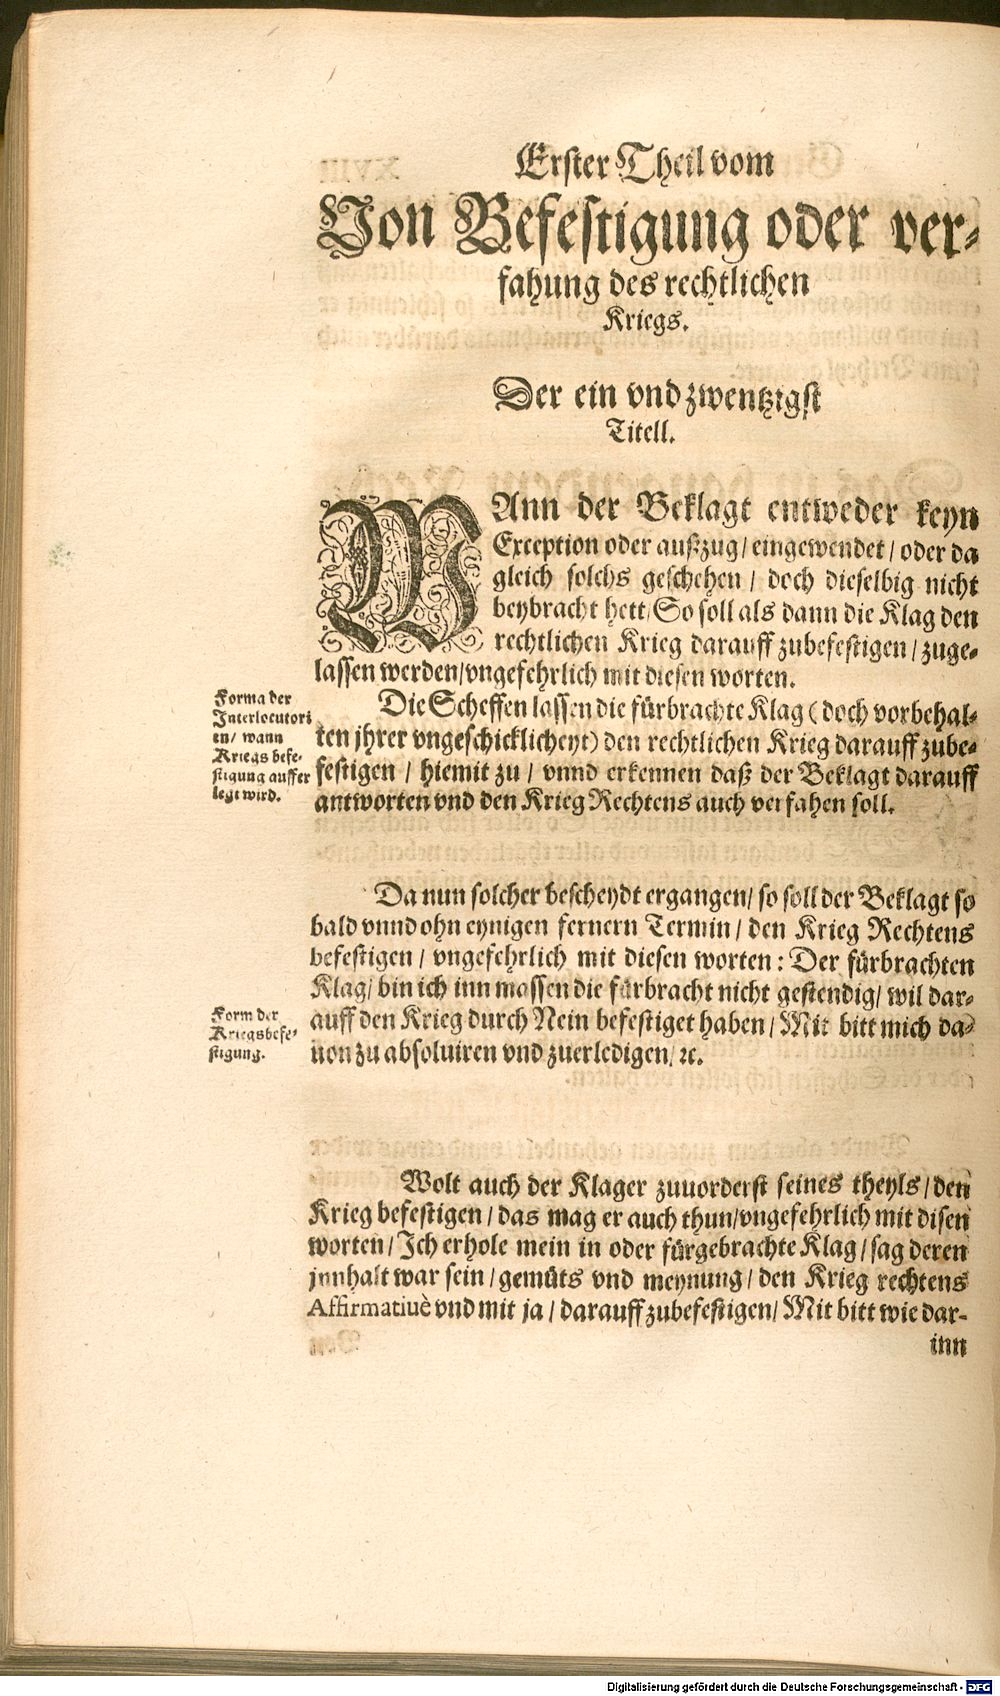 Erster Theil vom
Von Befestigung oder ver-
fahung des rechtlichen
Kriegs.
Der ein vnd zwentzigst
Titell.
WAnn der Beklagt entweder keyn
Exception oder außzug / eingewendet / oder da
gleich solchs geschehen / doch dieselbig nicht
beybracht hett / So soll als dann die Klag den
rechtlichen Krieg darauff zubefestigen / zuge-
lassen werden / vngefehrlich mit diesen worten.
Forma der
Interlocutori
en / wann
Kriegs befe-
stigung auffer
legt wird.
Die Scheffen lassen die fürbrachte Klag ( doch vorbehal-
ten jhrer vngeschicklicheyt ) den rechtlichen Krieg darauff zube-
festigen / hiemit zu / vnnd erkennen daß der Beklagt darauff
antworten vnd den Krieg Rechtens auch verfahen soll.
Da nun solcher bescheydt ergangen / so soll der Beklagt so
bald vnnd ohn eynigen fernern Termin / den Krieg Rechtens
befestigen / vngefehrlich mit diesen worten : Der fürbrachten
Klag / bin ich inn massen die fürbracht nicht gestendig / wil dar-
auff den Krieg durch Nein befestiget haben / Mit bitt mich da-
uon zu absoluiren vnd zuerledigen / ꝛc.
Form der
Kriegsbefe-
stigung.
Wolt auch der Klager zuuorderst seines theyls / den
Krieg befestigen / das mag er auch thun / vngefehrlich mit disen
worten / Ich erhole mein in oder fürgebrachte Klag / sag deren
jnnhalt war sein / gemüts vnd meynung / den Krieg rechtens
Affirmatiuè vnd mit ja / darauff zubefestigen / Mit bitt wie dar-
inn
Digitalisierung gefördert durch die Deutsche Forschungsgemeinschaft - DFG